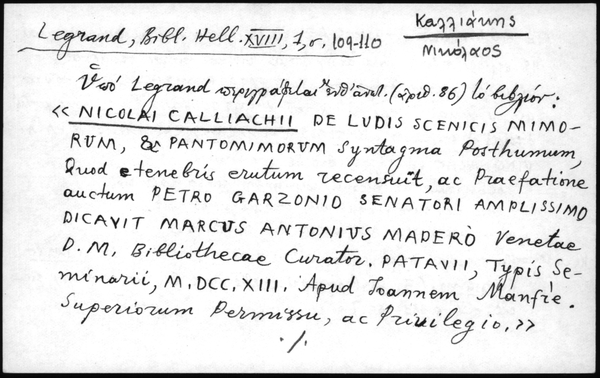 Καλλιάκης
Νικόλαος
Legrand, Bibl. Hell. XVIII, 1, σ. 109-110
Ὑπό Legrand περιγράφεται (ἀριθ. 86) τό βιβλίον:
«NICOLAI CALLIACHII DE LUDIS SCENICIS MIMO-
RUM, & PANTOMIMORUM Syntagma Posthumum,
Quod e tenebris erutum recensuit, ac Praefatione
auctum PETRO GARZONIO SENATORI AMPLISSIMO
DICAVIT MARCUS ANTONIUS MADERÒ Venetae
D. M. Bibliothecae Curator. PATAVII, Typis Se-
minarii, M.DCC.XIII. Apud Joannem Manfrè.
Superiorum Permissu, ac Privilegio.»
./.